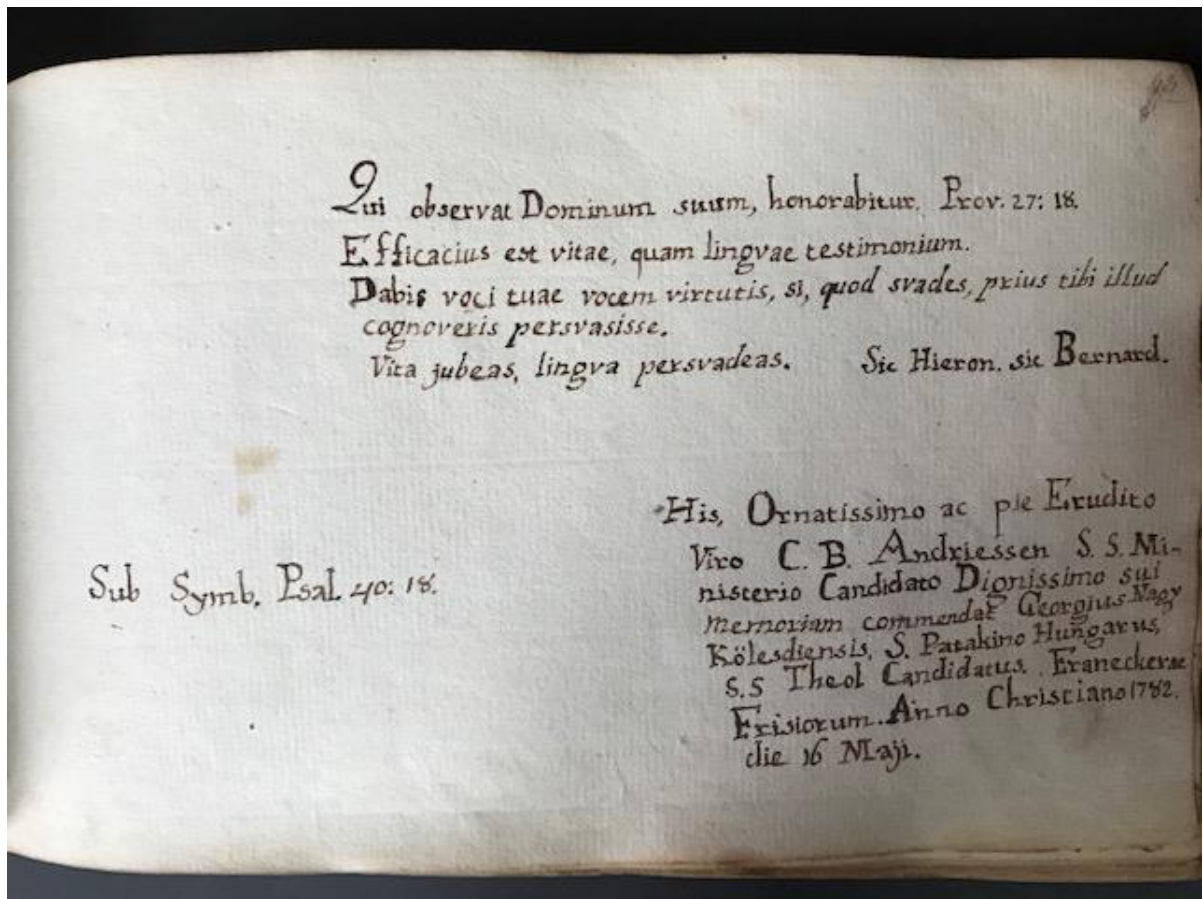 Qui observat Dominum suum, honorabitur. Prov. 27: 18.
Efficacius est vitae, quam lingvae testimonium.
Dabis voci tuae vocem virtutis, si, quod svades, prius tibi illud
cognoveris persvasisse.
Vita jubeas, lingva persvadeas. Sic Hieron. sic Bernard.
Sub Symb. Psal. 40: 18.
His, Ornatissimo ac pie Erudito
Viro C. B. Andriessen S. S. Mi-
nisterio Candidato Dignissimo sui
memoriam commendat Georgius Nagy
Kölesdiensis, S. Patakino Hungarus,
S.S Theol Candidatus. Franeckerae
Frisiorum. Anno Christiano 1782.
die 16 Maji.